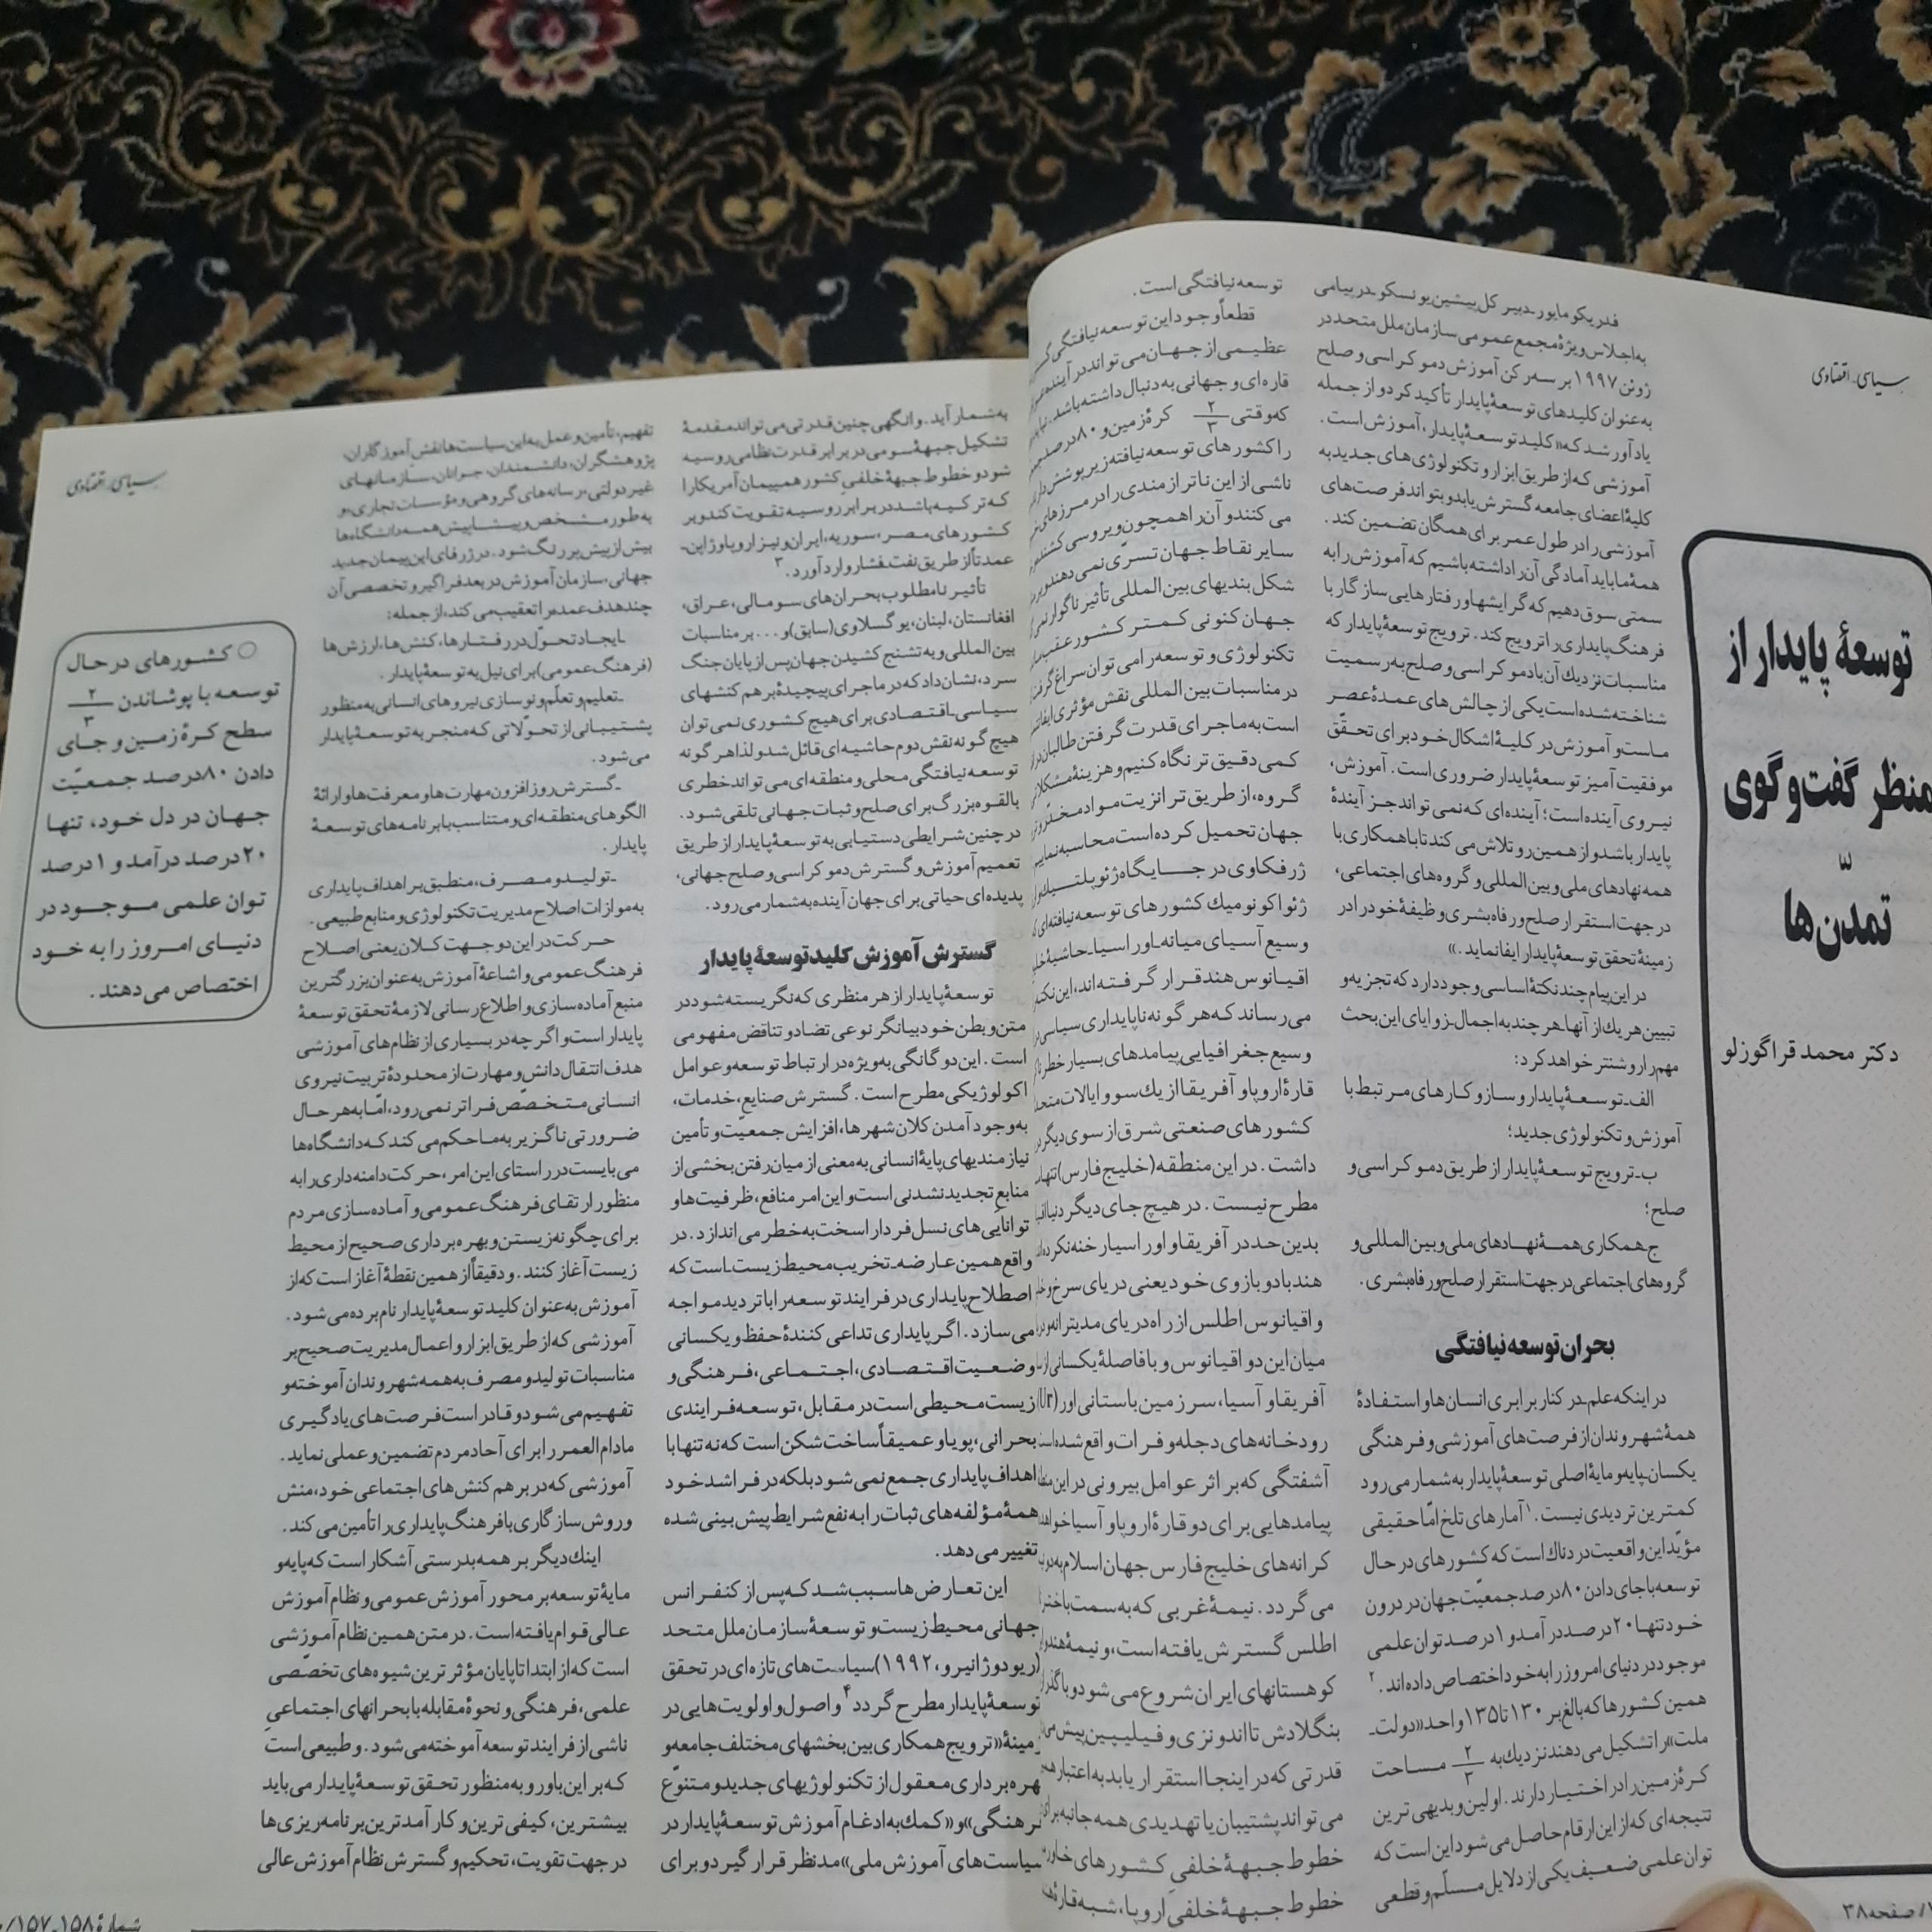 سیاسی-اقتصادی
توسعهٔ پایدار از
منظر گفت‌وگوی
تمدّن‌ها
دکتر محمد قراگوزلو
فدریکو مایور-دبیر کل پیشین یونسکو-در پیامی
به اجلاس ویژهٔ مجمع عمومی سازمان ملل متحد در
ژوئن ۱۹۹۷ بر سه رکن آموزش دموکراسی و صلح
به عنوان کلیدهای توسعهٔ پایدار تأکید کرد و از جمله
یادآور شد که «کلید توسعهٔ پایدار، آموزش است.
آموزشی که از طریق ابزار و تکنولوژی‌های جدید به
کلیهٔ اعضای جامعه گسترش یابد و بتواند فرصت‌های
آموزشی را در طول عمر برای همگان تضمین کند.
همهٔ ما باید آمادگی آن را داشته باشیم که آموزش را به
سمتی سوق دهیم که گرایشها و رفتارهایی سازگار با
فرهنگ پایداری را ترویج کند. ترویج توسعهٔ پایدار که
مناسبات نزدیك آن با دموکراسی و صلح به رسمیت
شناخته شده است یکی از چالش‌های عمدهٔ عصر
ماست و آموزش در کلیهٔ اشکال خود برای تحقّق
موفقیت آمیز توسعهٔ پایدار ضروری است. آموزش،
نیروی آینده است؛ آینده‌ای که نمی تواند جز آیندهٔ
پایدار باشد و از همین رو تلاش می کند تا با همکاری با
همه نهادهای ملی و بین المللی و گروه‌های اجتماعی،
در جهت استقرار صلح و رفاه بشری وظیفهٔ خود را در
زمینهٔ تحقق توسعهٔ پایدار ایفا نماید.»
در این پیام چند نکتهٔ اساسی وجود دارد که تجزیه و
تبیین هر یك از آنها-هر چند به اجمال-زوایای این بحث
مهم را روشنتر خواهد کرد:
الف-توسعهٔ پایدار و سازوکارهای مرتبط با
آموزش و تکنولوژی جدید؛
ب-ترویج توسعهٔ پایدار از طریق دموکراسی و
صلح؛
ج-همکاری همهٔ نهادهای ملی و بین المللی و
گروه‌های اجتماعی در جهت استقرار صلح و رفاه بشری.
بحران توسعه نیافتگی
در اینکه علم-در کنار برابری انسان‌ها و استفادهٔ
همهٔ شهروندان از فرصت‌های آموزشی و فرهنگی
یکسان-پایه و مایهٔ اصلی توسعهٔ پایدار به شمار می رود
کمترین تردیدی نیست.۱ آمارهای تلخ امّا حقیقی
مؤیّد این واقعیت دردناك است که کشورهای در حال
توسعه با جای دادن ۸۰ درصد جمعیّت جهان در درون
خود تنها ۲۰ درصد درآمد و ۱ درصد توان علمی
موجود در دنیای امروز را به خود اختصاص داده‌اند.۲
همین کشورها که بالغ بر ۱۳۰ تا ۱۳۵ واحد «دولت-
ملت» را تشکیل می دهند نزدیك به ۲/۳ مساحت
کرهٔ زمین را در اختیار دارند. اولین و بدیهی ترین
نتیجه‌ای که از این ارقام حاصل می شود این است که
توان علمی ضعیف یکی از دلایل مسلّم و قطعی
توسعه نیافتگی است.
قطعاً وجود این توسعه نیافتگی
عظیمی از جهان می تواند در آینده
قاره‌ای و جهانی به دنبال داشته باشد.
که وقتی ۲/۳ کرهٔ زمین و ۸۰ درصد
را کشورهای توسعه نیافته زیر پوشش
ناشی از این ناترازمندی را در مرزهای
می کنند و آن را همچون ویروسی
سایر نقاط جهان تسرّی نمی دهند
شکل بندیهای بین المللی تأثیر ناگوار
جهان کنونی کمتر کشور عقب
تکنولوژی و توسعه را می توان سراغ گرفت
در مناسبات بین المللی نقش مؤثری
است به ماجرای قدرت گرفتن طالبان
کمی دقیق تر نگاه کنیم و هزینهٔ
گروه، از طریق ترانزیت مواد مخدّر
جهان تحمیل کرده است محاسبه
ژرفکاوی در جایگاه ژئوپلتیك و
ژئواکونومیك کشورهای توسعه نیافته‌ای
وسیع آسیای میانه-اوراسیا-حاشیهٔ
اقیانوس هند قرار گرفته‌اند، این نکته
می رساند که هر گونه ناپایداری سیاسی
وسیع جغرافیایی پیامدهای بسیار
قارهٔ اروپا و آفریقا از یك سو و ایالات متحد
کشورهای صنعتی شرق از سوی دیگر
داشت. در این منطقه (خلیج فارس) تنها
مطرح نیست. در هیچ جای دیگر دنیا
بدین حد در آفریقا و اوراسیا رخنه نکرده
هند با دو بازوی خود یعنی دریای سرخ و
و اقیانوس اطلس از راه دریای مدیترانه
میان این دو اقیانوس و با فاصلهٔ یکسانی از
آفریقا و آسیا، سرزمین باستانی اور
رودخانه‌های دجله و فرات واقع شده
آشفتگی که بر اثر عوامل بیرونی در این
پیامدهایی برای دو قارهٔ اروپا و آسیا
کرانه‌های خلیج فارس جهان اسلام به دو
می گردد. نیمهٔ غربی که به سمت
اطلس گسترش یافته است، و نیمهٔ
کوهستانهای ایران شروع می شود و با
بنگلادش تا اندونزی و فیلیپین پیش
قدرتی که در اینجا استقرار یابد به اعتبار
می تواند پشتیبان یا تهدیدی همه جانبه برای
خطوط جبههٔ خلفی کشورهای
خطوط جبههٔ خلفی اروپا، شبه قارهٔ
صفحه ۳۸
به شمار آید. وانگهی چنین قدرتی می تواند مقدمهٔ
تشکیل جبههٔ سومی در برابر قدرت نظامی روسیه
شود و خطوط جبههٔ خلفی کشور هم پیمان آمریکا را
که ترکیه باشد در برابر روسیه تقویت کند و بر
کشورهای مصر، سوریه، ایران و نیز اروپا و ژاپن-
عمدتاً از طریق نفت-فشار وارد آورد.۳
تأثیر نامطلوب بحران‌های سومالی، عراق،
افغانستان، لبنان، یوگسلاوی (سابق) و... بر مناسبات
بین المللی و به تشنج کشیدن جهان پس از پایان جنگ
سرد، نشان داد که در ماجرای پیچیدهٔ برهم کنشهای
سیاسی-اقتصادی برای هیچ کشوری نمی توان
هیچ گونه نقش دوم حاشیه‌ای قائل شد و لذا هر گونه
توسعه نیافتگی محلی و منطقه‌ای می تواند خطری
بالقوه بزرگ برای صلح و ثبات جهانی تلقی شود.
در چنین شرایطی دستیابی به توسعهٔ پایدار از طریق
تعمیم آموزش و گسترش دموکراسی و صلح جهانی،
پدیده‌ای حیاتی برای جهان آینده به شمار می رود.
گسترش آموزش کلید توسعهٔ پایدار
توسعهٔ پایدار از هر منظری که نگریسته شود در
متن و بطن خود بیانگر نوعی تضاد و تناقض مفهومی
است. این دوگانگی به ویژه در ارتباط توسعه و عوامل
اکولوژیکی مطرح است. گسترش صنایع، خدمات،
به وجود آمدن کلان شهرها، افزایش جمعیّت و تأمین
نیازمندیهای پایهٔ انسانی به معنی از میان رفتن بخشی از
منابع تجدید نشدنی است و این امر منافع، ظرفیت‌ها و
توانایی‌های نسل فردا را سخت به خطر می اندازد. در
واقع همین عارضه-تخریب محیط زیست-است که
اصطلاح پایداری در فرایند توسعه را با تردید مواجه
می سازد. اگر پایداری تداعی کنندهٔ حفظ و یکسانی
وضعیت اقتصادی، اجتماعی، فرهنگی و
زیست محیطی است در مقابل، توسعه فرایندی
بحرانی، پویا و عمیقاً ساخت شکن است که نه تنها با
اهداف پایداری جمع نمی شود بلکه در فراشد خود
همهٔ مؤلفه‌های ثبات را به نفع شرایط پیش بینی شده
تغییر می دهد.
این تعارض‌ها سبب شد که پس از کنفرانس
جهانی محیط زیست و توسعهٔ سازمان ملل متحد
(ریودوژانیرو، ۱۹۹۲) سیاست‌های تازه‌ای در تحقق
توسعهٔ پایدار مطرح گردد۴ و اصول و اولویت‌هایی در
زمینهٔ «ترویج همکاری بین بخشهای مختلف جامعه و
بهره برداری معقول از تکنولوژیهای جدید و متنوّع
فرهنگی» و «کمك به ادغام آموزش توسعهٔ پایدار در
سیاست‌های آموزش ملی» مد نظر قرار گیرد و برای
تفهیم، تأمین و عمل به این سیاست‌ها نقش آموزگاران،
پژوهشگران، دانشمندان، جوانان، سازمانهای
غیر دولتی، رسانه‌های گروهی و مؤسسات تجاری، و
به طور مشخص و پیشاپیش همه دانشگاه‌ها
بیش از پیش پررنگ شود. در ژرفای این پیمان جدید
جهانی، سازمان آموزش در بعد فراگیر و تخصصی آن
چند هدف عمده را تعقیب می کند، از جمله:
-ایجاد تحوّل در رفتارها، کنش‌ها، ارزش‌ها
(فرهنگ عمومی) برای نیل به توسعهٔ پایدار.
-تعلیم و تعلّم و نوسازی نیروهای انسانی به منظور
پشتیبانی از تحوّلاتی که منجر به توسعهٔ پایدار
می شود.
-گسترش روزافزون مهارت‌ها و معرفت‌ها و ارائهٔ
الگوهای منطقه‌ای و متناسب با برنامه‌های توسعهٔ
پایدار.
-تولید و مصرف، منطبق بر اهداف پایداری
به موازات اصلاح مدیریت تکنولوژی و منابع طبیعی.
حرکت در این دو جهت کلان یعنی اصلاح
فرهنگ عمومی و اشاعهٔ آموزش به عنوان بزرگترین
منبع آماده سازی و اطلاع رسانی لازمهٔ تحقق توسعهٔ
پایدار است و اگر چه در بسیاری از نظام‌های آموزشی
هدف انتقال دانش و مهارت از محدودهٔ تربیت نیروی
انسانی متخصّص فراتر نمی رود، امّا به هر حال
ضرورتی ناگزیر به ما حکم می کند که دانشگاه‌ها
می بایست در راستای این امر، حرکت دامنه داری را به
منظور ارتقای فرهنگ عمومی و آماده سازی مردم
برای چگونه زیستن و بهره برداری صحیح از محیط
زیست آغاز کنند. و دقیقاً از همین نقطهٔ آغاز است که از
آموزش به عنوان کلید توسعهٔ پایدار نام برده می شود.
آموزشی که از طریق ابزار و اعمال مدیریت صحیح بر
مناسبات تولید و مصرف به همه شهروندان آموخته و
تفهیم می شود و قادر است فرصت‌های یادگیری
مادام العمر را برای آحاد مردم تضمین و عملی نماید.
آموزشی که در برهم کنش‌های اجتماعی خود، منش
و روش سازگاری با فرهنگ پایداری را تأمین می کند.
اینك دیگر بر همه بدرستی آشکار است که پایه و
مایهٔ توسعه بر محور آموزش عمومی و نظام آموزش
عالی قوام یافته است. در متن همین نظام آموزشی
است که از ابتدا تا پایان مؤثرترین شیوه‌های تخصّصی
علمی، فرهنگی و نحوهٔ مقابله با بحرانهای اجتماعی
ناشی از فرایند توسعه آموخته می شود. و طبیعی است
که بر این باور و به منظور تحقق توسعهٔ پایدار می باید
بیشترین، کیفی ترین و کارآمدترین برنامه ریزی‌ها
در جهت تقویت، تحکیم و گسترش نظام آموزش عالی
سیاسی-اقتصادی
○ کشورهای در حال
توسعه با پوشاندن ۲/۳
سطح کرهٔ زمین و جای
دادن ۸۰ درصد جمعیّت
جهان در دل خود، تنها
۲۰ درصد درآمد و ۱ درصد
توان علمی موجود در
دنیای امروز را به خود
اختصاص می دهند.
شمارهٔ ۱۵۸-۱۵۷/